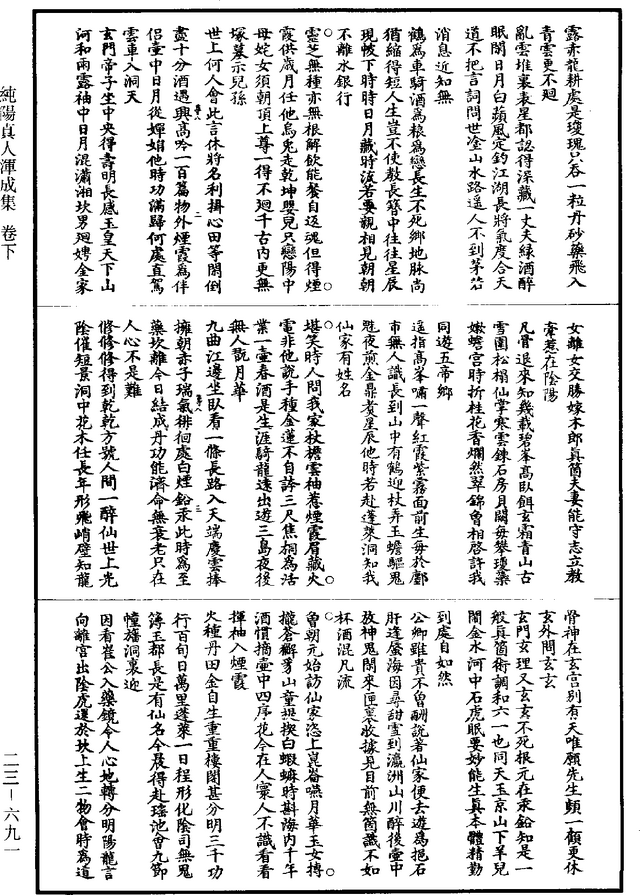 露赤龍耕處是瓊瑰只吞一粒丹砂藥飛入
青雲更不迴
亂雲堆裏表星都認得深藏一丈夫綠酒醉
眠閑日月白蘋風定釣江湖長將氣度合天
道不把言詞問世塗山水路遥人不到茅茨
消息近知無
鶴為車騎酒為粮為戀長生不死鄉地脉尚
猶縮得短人生豈不使教長簪中往往星辰
現帔下時時日月藏時流若要親相見朝朝
不離水銀行
靈芝無種亦無根解飲能餐自返魂但得煙
霞供歲月任他烏兔走乾坤嬰兒只戀陽中
母姹女須朝頂上尊一得不迴千古內更無
塚墓示兒孫
世上何人會此言休將名利掛心田等閑倒
盡十分酒遇興高吟一百篇物外煙霞為伴
侶壺中日月從嬋娟他時功滿歸何處直駕
雲車入洞天
玄門帝子坐中央得壽明長感玉皇天下山
河和雨露袖中日月混瀟湘坎男迴娉金家
女離女交勝嫁木郎真箇夫妻能守志立教
牽惹在陰陽
凡骨退來知幾載碧峯高臥餌玄霜青山古
雪圍松榻仙掌寒雲鍊石房貝闕每攀瓊藥
嫩蟾宮時折桂花香爛然翠錦曾相啓許我
同遊五帝鄉
遥指高峯嘯一聲紅霞紫霧面前生每於鄽
市無人識長到山中有鶴迎杖弄玉蟾驅鬼
魅夜煎金鼎煮星辰他時若赴蓬萊洞知我
仙家有姓名
堪笑時人問我家杖擔雲袖惹煙霞眉藏火
電非他說手種金蓮不自誇三尺焦桐為活
業一壺春酒是生涯騎龍遠出遊三島夜後
無人翫月華
九曲江邊坐臥看一條長路入天端慶雲捧
擁朝赤子瑞氣徘徊處白煙鉛汞此時為至
藥坎離今日結成丹功能濟命無衰老只在
人心不是難
修修修得到乾乾方號人間一醉仙世上光
陰催短景洞中花木任長年形飛峭壁知龍
骨神在玄宫別有天唯願先生頻一顧更休
玄外問玄玄
玄門玄理又玄玄不死根元在汞鉛知是一
般真箇術調和六一也同天玉京山下羊兒
閙金水河中石虎眠要妙能生真本體精勤
到處自如然
公卿雖貴不曾酬說著仙家便去遊為挹石
肝逢蜃海因尋甜雪到瀛洲山川醉後壺中
放神鬼閑來匣裏收據見目前無箇識不如
杯酒混凡流
曾朝元始訪仙家恣上崑崙嚥月華玉女搏
攏蒼獬豸山童提挈白蝦蟆時斟海內千年
酒慣摘壺中四序花今在人寰人不識看看
揮袖入煙霞
火種丹田金自生重重樓閣甚分明三千功
行百旬日萬里蓬萊一日程形化陰司無鬼
簿玉都長是有仙名今晨得赴瑤池會九節
幢旛洞裏迎
因看崔公入藥鏡令人心地轉分明陽龍言
向離宮出陰虎還於坎上生二物會時為道
純陽真人渾成集 卷下
二三－六九一